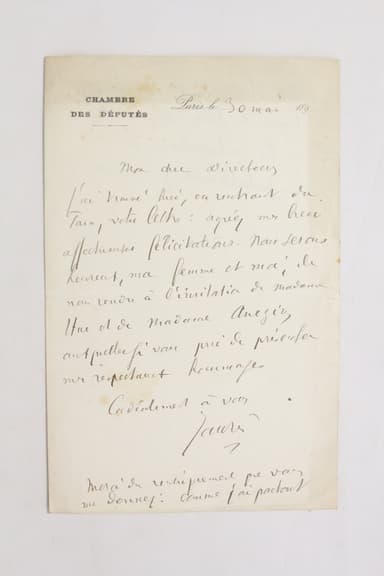 CHAMBRE
DES DÉPUTÉS
Paris le 30 mai 189
Mon cher Directeur
J'ai trouvé hier, en rentrant du
Tarn, votre lettre : agréez mes bien
affectueuses félicitations. Nous serons
heureux, ma femme et moi, de
nous rendre à l'invitation de madame
Hue et de Madame
auxquelles je vous prie de présenter
mes respectueux hommages
Cordialement à vous
Jaurès
Merci du renseignement que vous
me donnez : comme j'ai partout